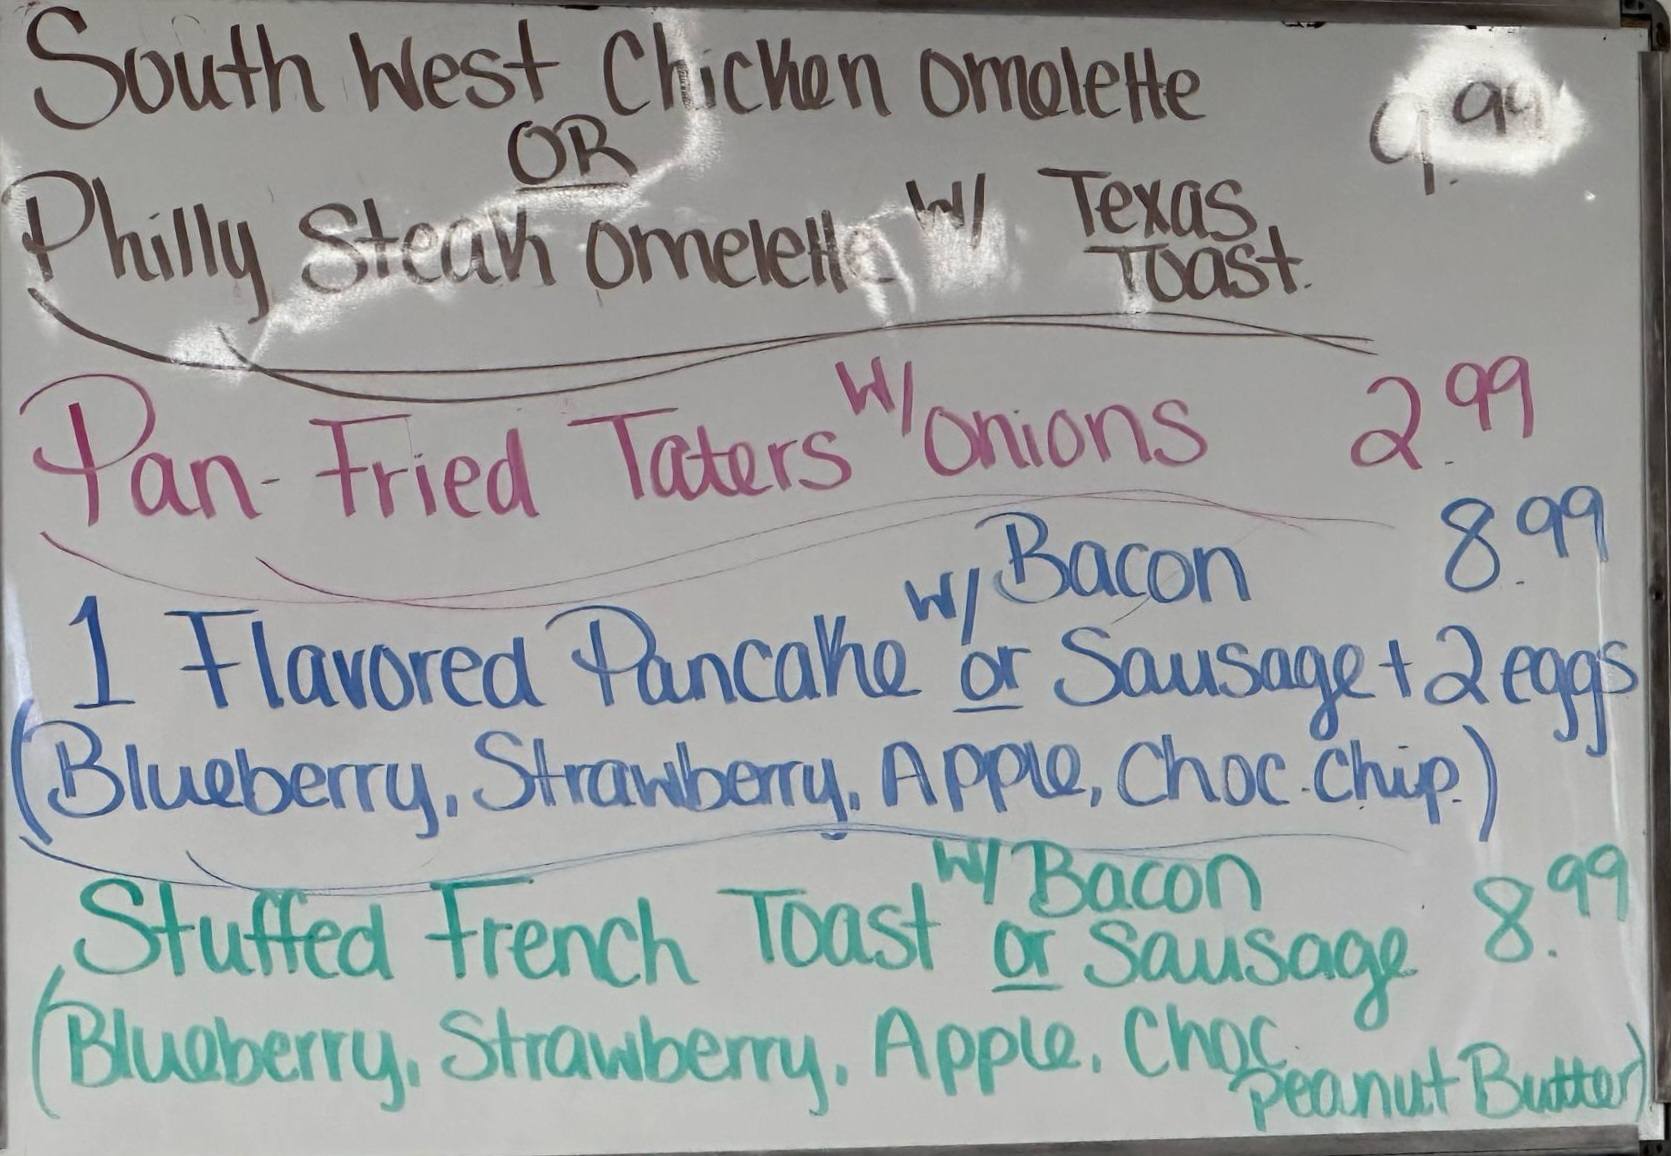 South West Chicken Omelette 9.99
OR
Philly Steak Omelette w/ Texas
Toast.
Pan-Fried Taters w/ Onions 2.99
w/ Bacon 8.99
1 Flavored Pancake or Sausage + 2 eggs
(Blueberry, Strawberry, Apple, Choc. Chip.)
w/ Bacon
Stuffed French Toast or Sausage 8.99
(Blueberry, Strawberry, Apple, Choc.
Peanut Butter)